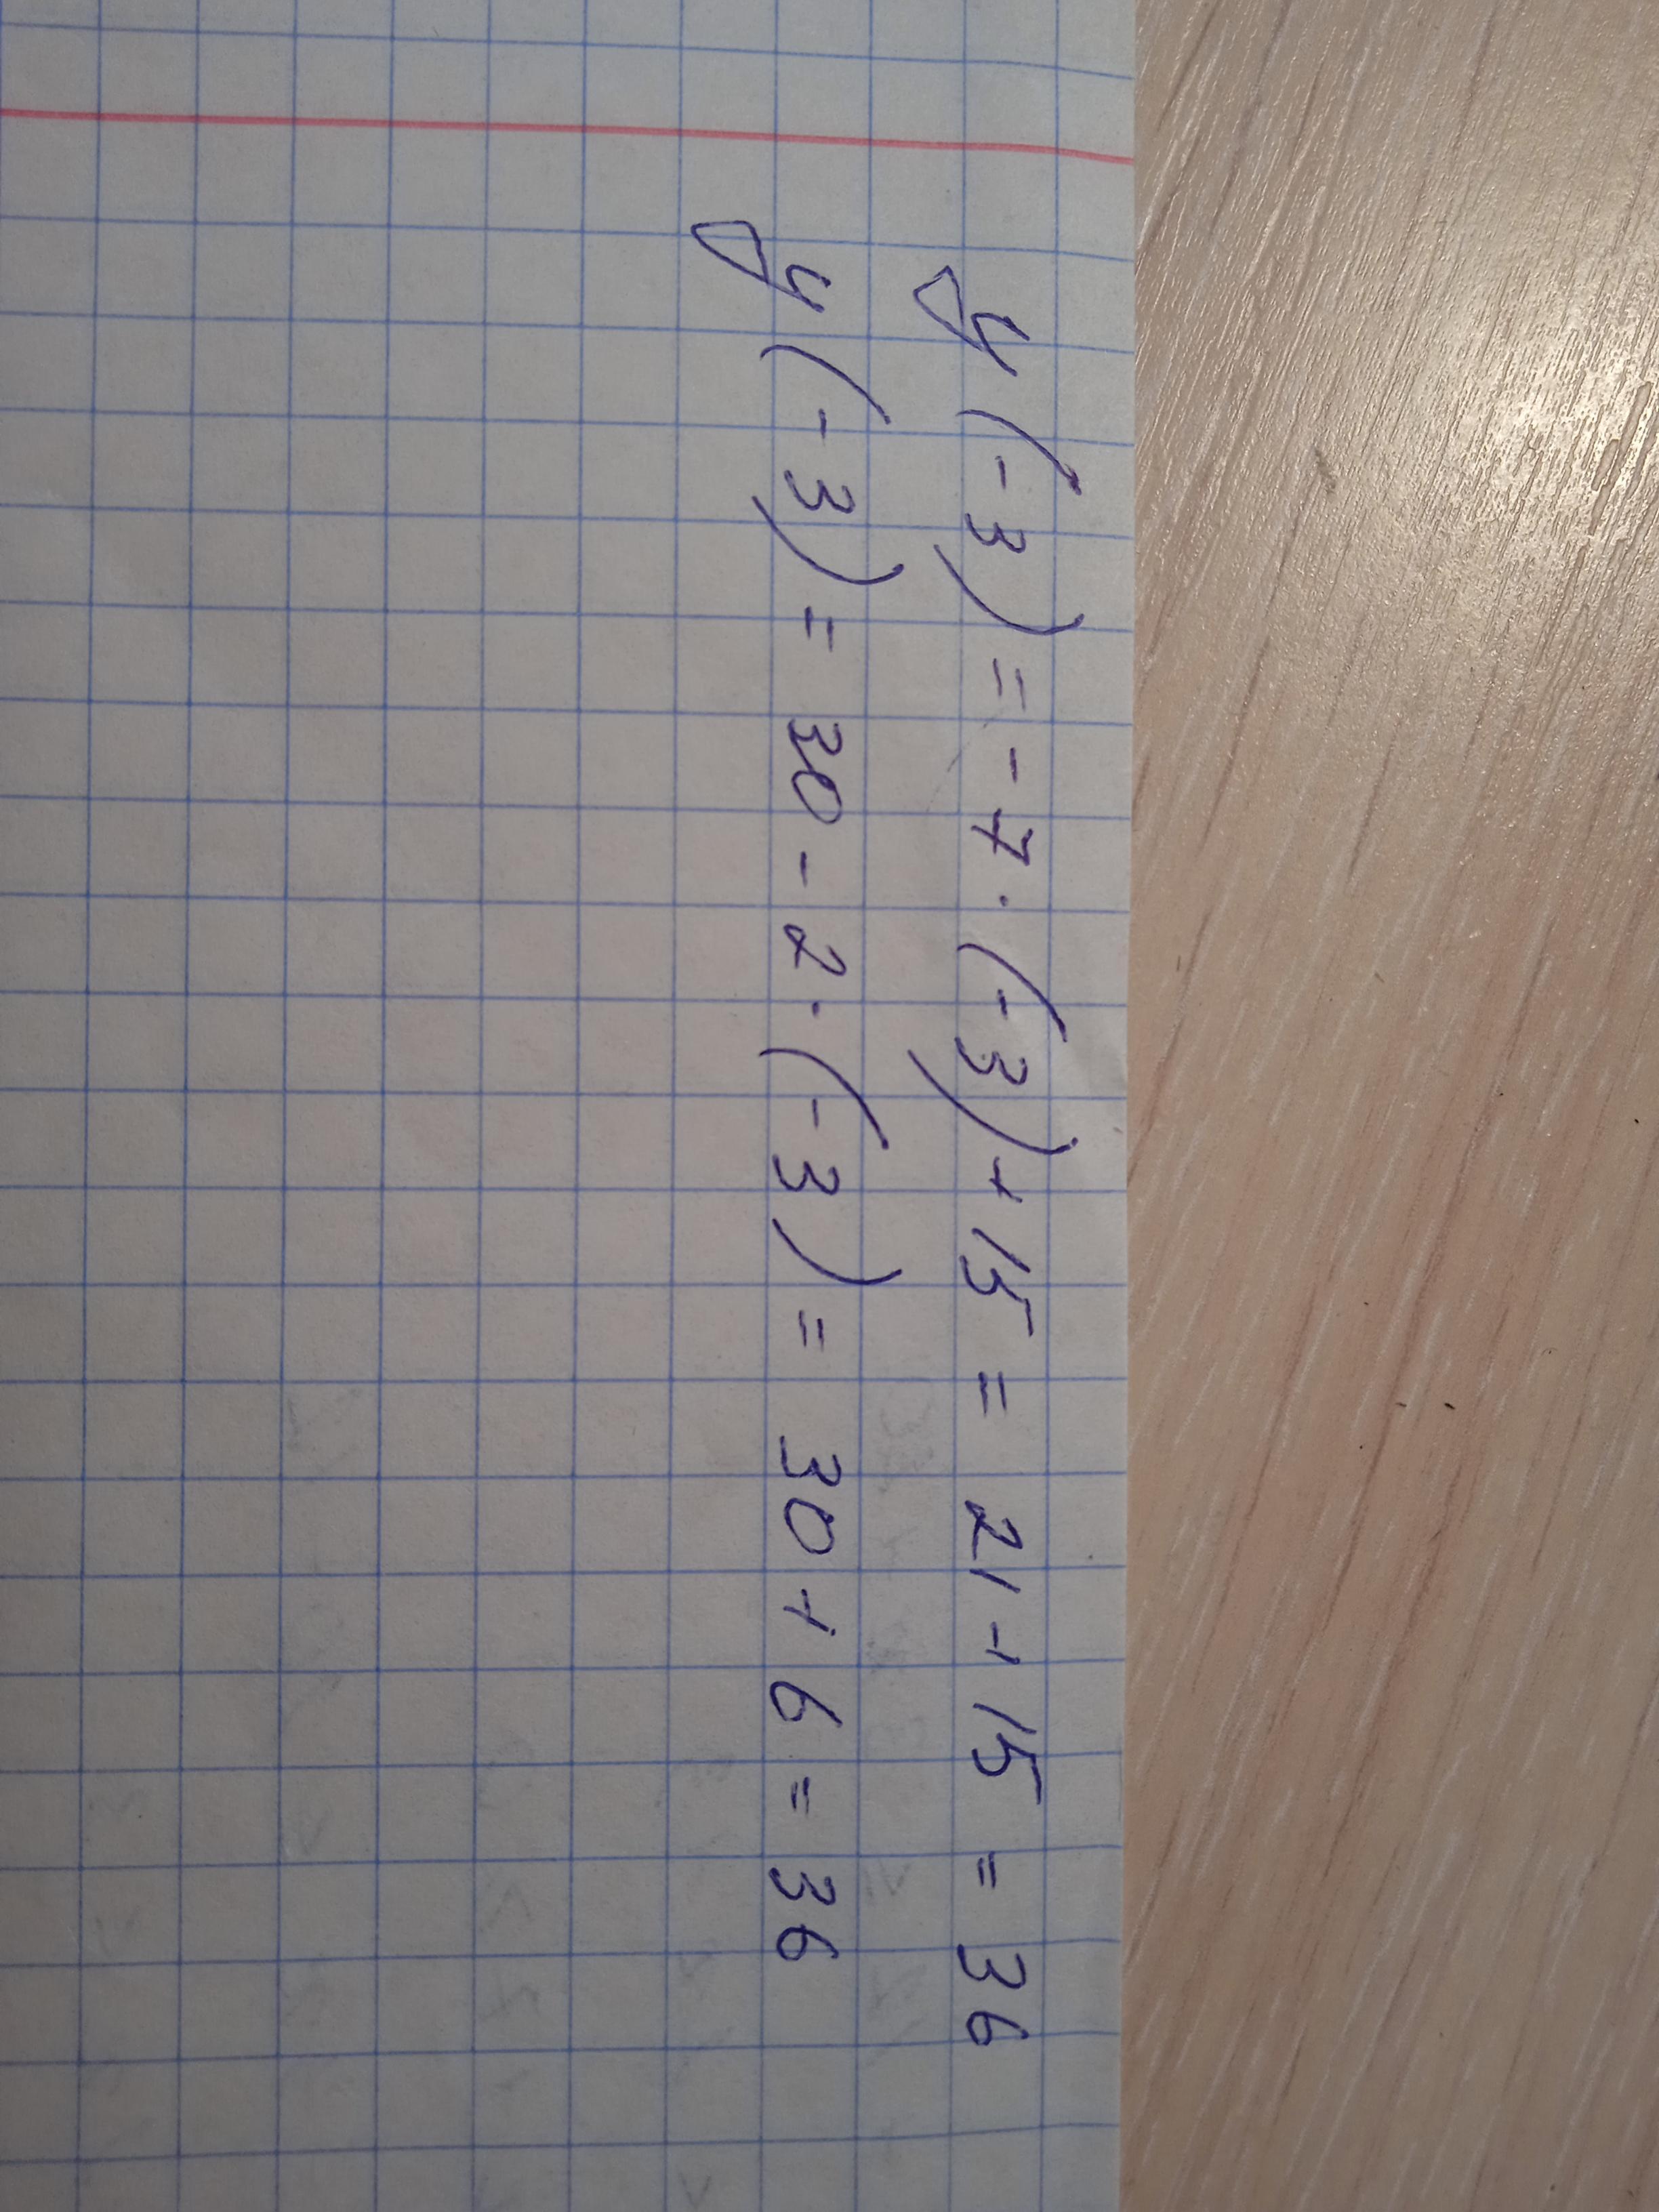 y(-3) = -7·(-3)+15 = 21+15 = 36
y(-3) = 30-2·(-3) = 30+6 = 36